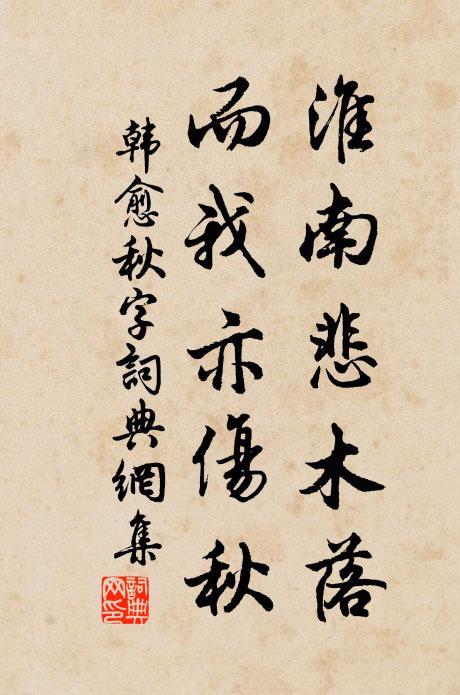 淮南悲木落
而我亦傷秋
韩愈秋字詞典網集
詞典
网印